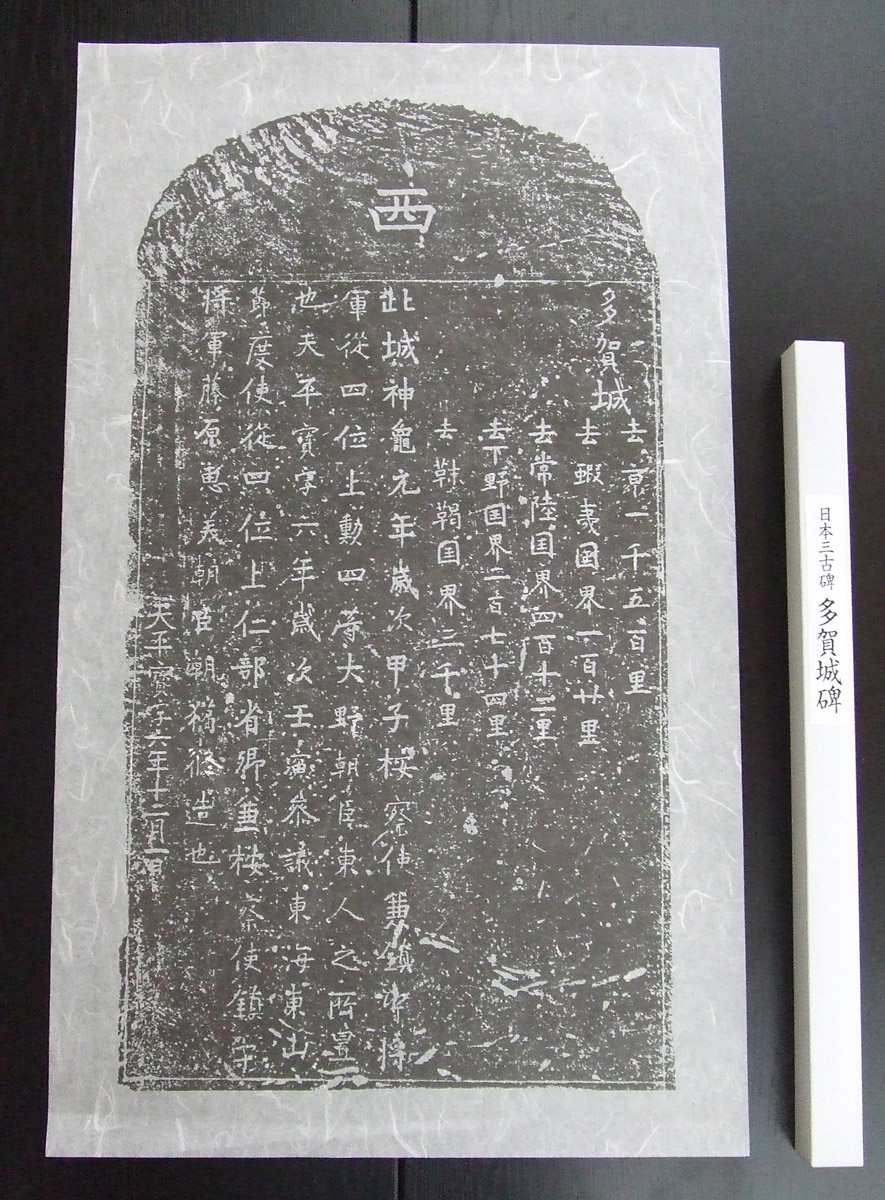 西
多賀城
去京一千五百里
去蝦夷国界一百廿里
去常陸国界四百十二里
去下野国界二百七十四里
去靺鞨国界三千里
此城神龜元年歳次甲子桉察使兼鎮守将
軍從四位上勲四等大野朝臣東人之所置
也天平寶字六年歳次壬寅参議東海東山
節度使從四位上仁部省卿兼桉察使鎮守
将軍藤原恵美朝臣朝獦修造也
天平寶字六年十二月一日
日本三古碑 多賀城碑